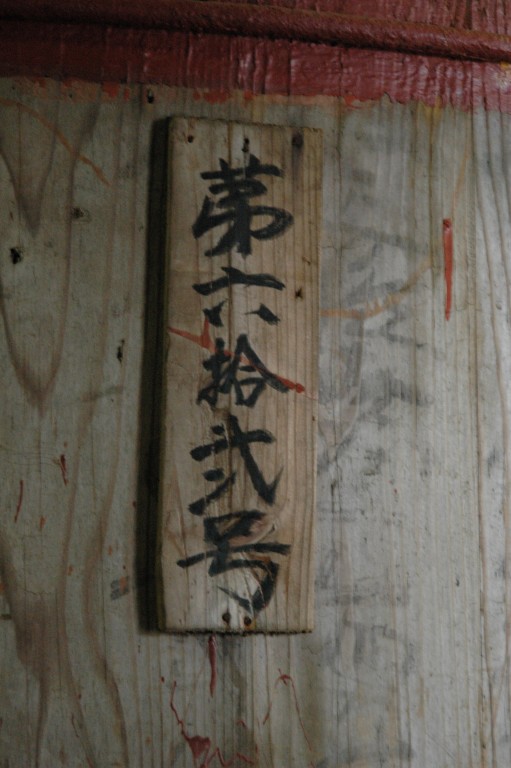 第六拾弐号